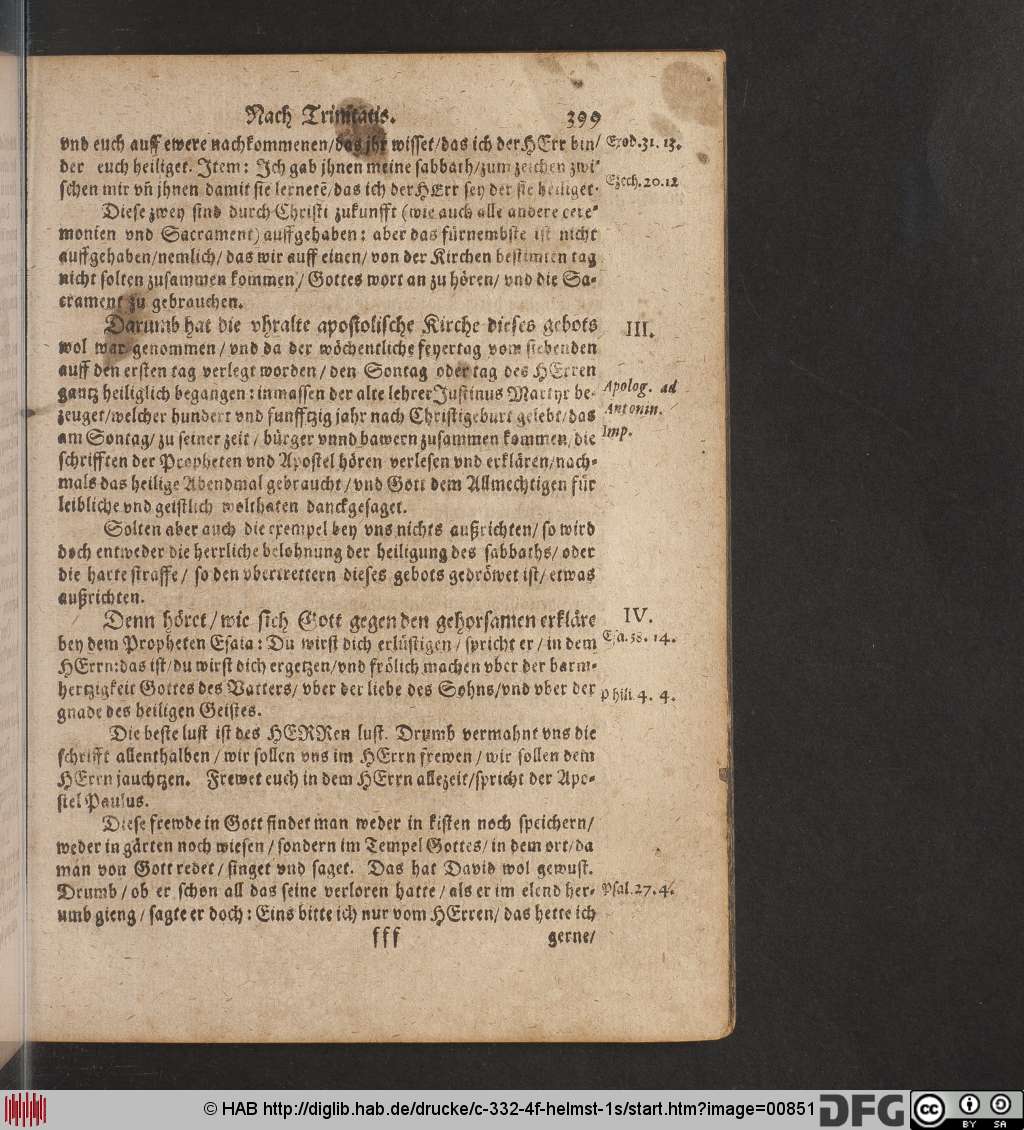 Nach Trinitatis. 399
vnd euch auff ewere nachkommenen/das jhr wisset/das ich der HErr bin/ Exod.31. 13.
der euch heiliget. Item: Ich gab jhnen meine sabbath/zum zeichen zwi-
schen mir vñ jhnen damit sie lernetē/das ich der HErr sey der sie heiliget. Ezech.20.12
Diese zwey sind durch Christi zukunfft (wie auch alle andere cere-
monien vnd Sacrament) auffgehaben: aber das fürnembste ist nicht
auffgehaben/nemlich/das wir auff einen/von der Kirchen bestimten tag
nicht solten zusammen kommen/ Gottes wort an zu hören/ vnd die Sa-
crament zu gebrauchen.
Darumb hat die vhralte apostolische Kirche dieses gebots III.
wol war genommen/vnd da der wöchentliche feyertag vom siebenden
auff den ersten tag verlegt worden/den Sontag oder tag des HErren
gantz heiliglich begangen: inmassen der alte lehrer Justinus Martyr be- Apolog. ad
zeuget/welcher hundert vnd funfftzig jahr nach Christi geburt gelebt/das Antonin.
am Sontag/zu seiner zeit/ bürger vnnd bawern zusammen kommen/die Imp.
schrifften der Propheten vnd Apostel hören verlesen vnd erklären/nach-
mals das heilige Abendmal gebraucht/vnd Gott dem Allmechtigen für
leibliche vnd geistlich wolthaten danckgesaget.
Solten aber auch die exempel bey vns nichts außrichten/so wird
doch entweder die herrliche belohnung der heiligung des sabbaths/oder
die harte straffe/ so den vbertrettern dieses gebots gedröwet ist/etwas
außrichten.
Denn höret/wie sich Gott gegen den gehorsamen erkläre IV.
bey dem Propheten Esaia: Du wirst dich erlüstigen/ spricht er/in dem Esa.58. 14.
HErrn:das ist/du wirst dich ergetzen/vnd frölich machen vber der barm-
hertzigkeit Gottes des Vatters/ vber der liebe des Sohns/vnd vber der Phili 4. 4.
gnade des heiligen Geistes.
Die beste lust ist des HERRen lust. Drumb vermahnt vns die
schrifft allenthalben/wir sollen vns im HErrn frewen/wir sollen dem
HErrn jauchtzen. Frewet euch in dem HErrn allezeit/spricht der Apo-
stel Paulus.
Diese frewde in Gott findet man weder in kisten noch speichern/
weder in gärten noch wiesen/sondern im Tempel Gottes/in dem ort/da
man von Gott redet/ singet vnd saget. Das hat David wol gewust.
Drumb/ob er schon all das seine verloren hatte/als er im elend her- Psal.27.4.
umb gieng/sagte er doch: Eins bitte ich nur vom HErren/das hette ich
fff gerne/
© HAB http://diglib.hab.de/drucke/c-332-4f-helmst-1s/start.htm?image=00851 DFG cc BY SA